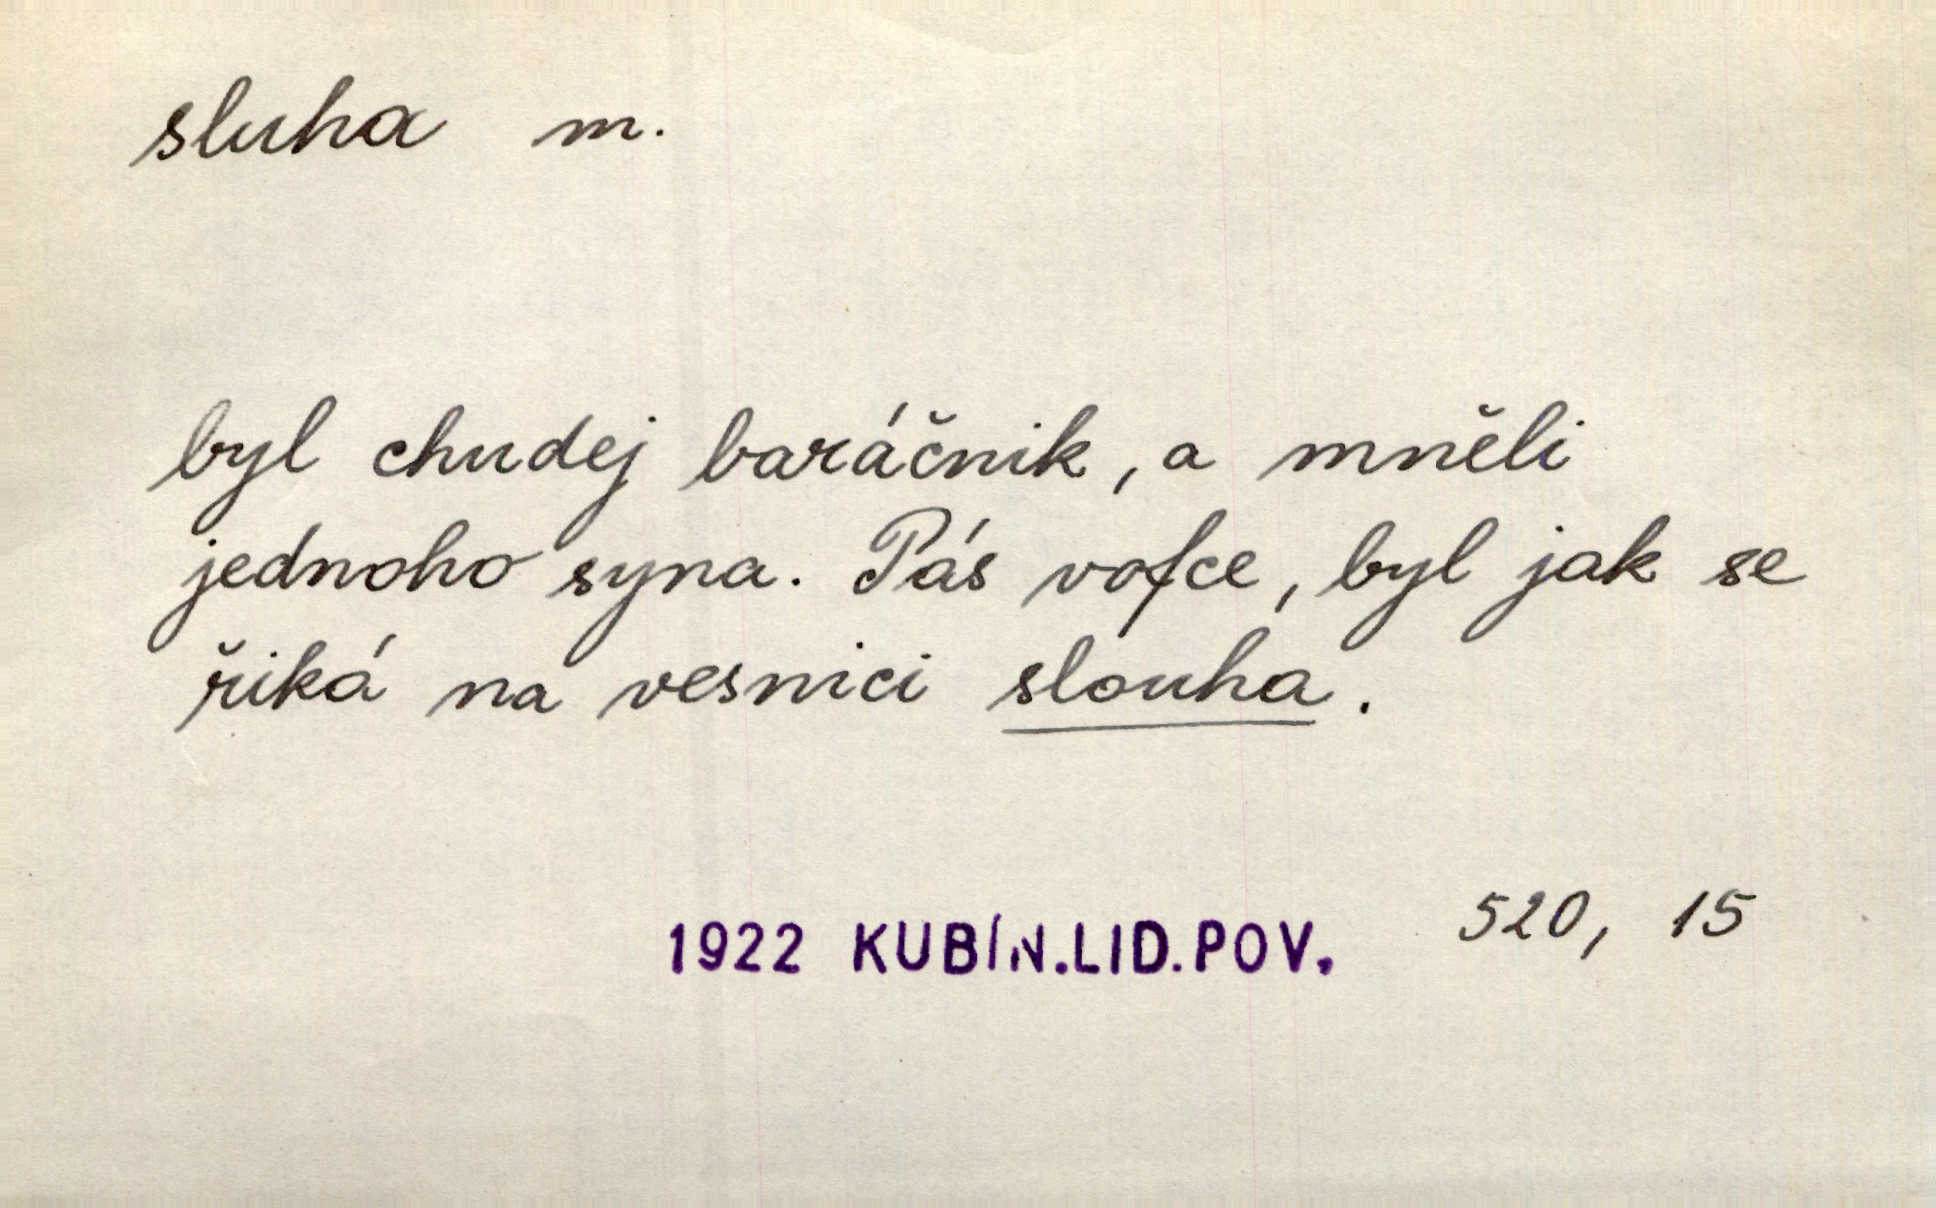 sluha m.
byl chudej baráčnik, a mněli
jednoho syna. Pás vofce, byl jak se
řiká na vesnici slouha.
1922 KUBÍN.LID.POV. 520, 15